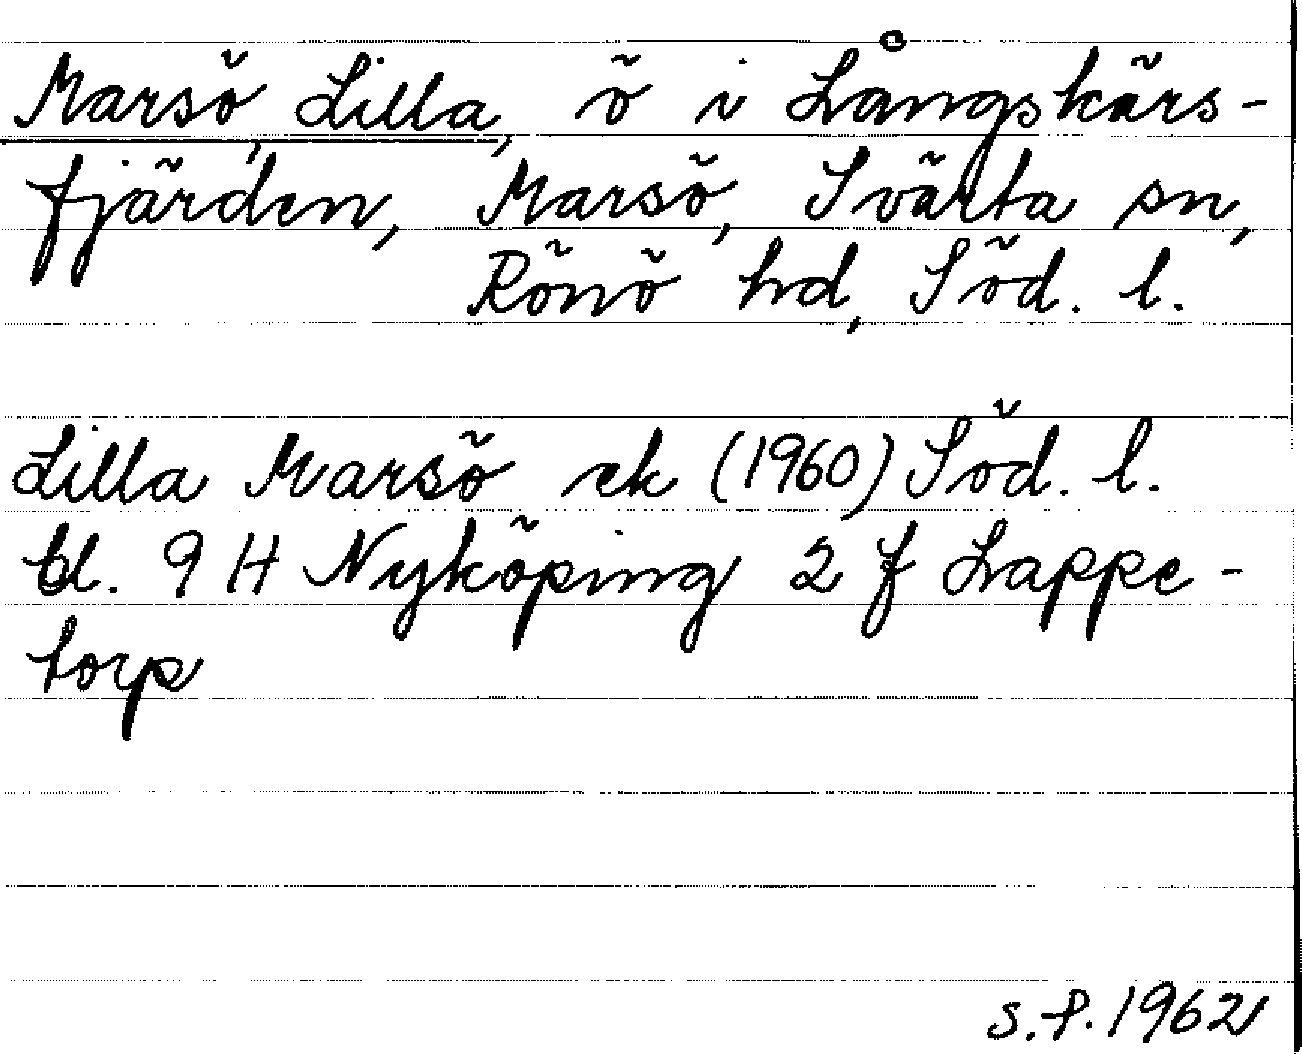 Marsö, Lilla, ö i Långskärs-
fjärden, Marsö, Svärta sn,
Rönö hd, Söd. l.
Lilla Marsö ek (1960) Söd. l.
bl. 9 H Nyköping 2 f Lappe-
torp
s.f. 1962